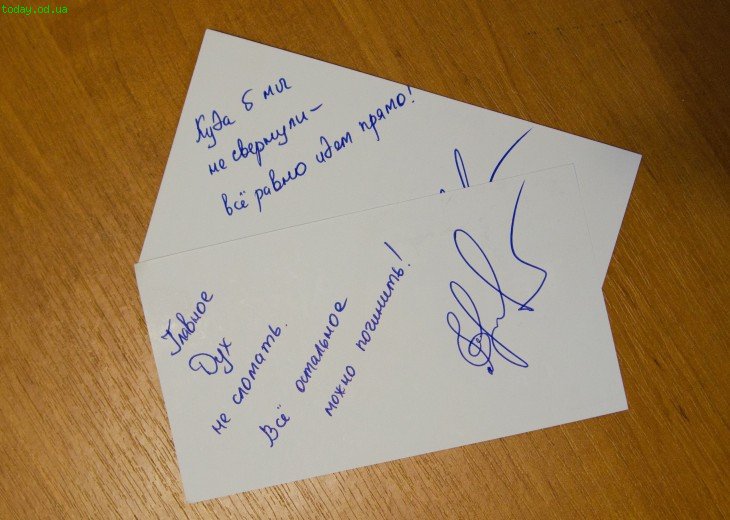 today.od.ua
Куда б мы
не свернули –
всё равно идем прямо!
Главное
Дух
не сломать.
Всё остальное
можно починить!